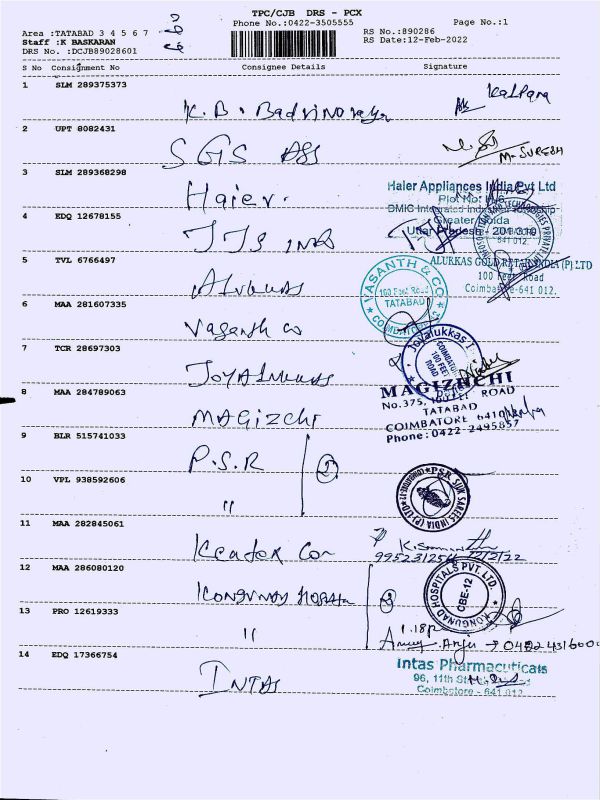 TPC/CJB DRS - PCX
Phone No.:0422-3505555
Page No.:1
Area :TATABAD 3 4 5 6 7
Staff :K BASKARAN
DRS No. :DCJB89028601
RS No.:890286
RS Date:12-Feb-2022
S No Consignment No Consignee Details Signature
1 SLM 289375373 K.B. Badrinaraya Kalpana
2 UPT 8082431 SGS ASS M-SURESH
3 SLM 289368298 Haier.
Haler Appliances India Pvt Ltd
Greater Noida
Uttar Pradesh - 201310
4 EDQ 12678155
5 TVL 6766497
ALUKKAS GOLD RETAIL INDIA (P) LTD
100 Feet Road
Coimbatore-641 012.
VASANTH & CO
100 Feet Road
TATABAD
COIMBATORE
6 MAA 281607335 Vasanth co
7 TCR 28697303 JOYALUKKAS
Joyalukkas
COIMBATORE
100 FEET
ROAD
8 MAA 284789063 MAGIZCHI
MAGIZHCHI
No.375, 100 FEET ROAD
TATABAD
COIMBATORE 6410
Phone:0422-2495857
9 BLR 515741033 P.S.R 2
10 VPL 938592606 "
PSR SILK SAREES INDIA (P) LTD
11 MAA 282845061
12 MAA 286080120
KONGUNAD HOSPITALS PVT. LTD.
CBE-12
13 PRO 12619333 "
14 EDQ 17366754 INTAS
Intas Pharmaceuticals
96, 11th
Coimbatore - 641 012